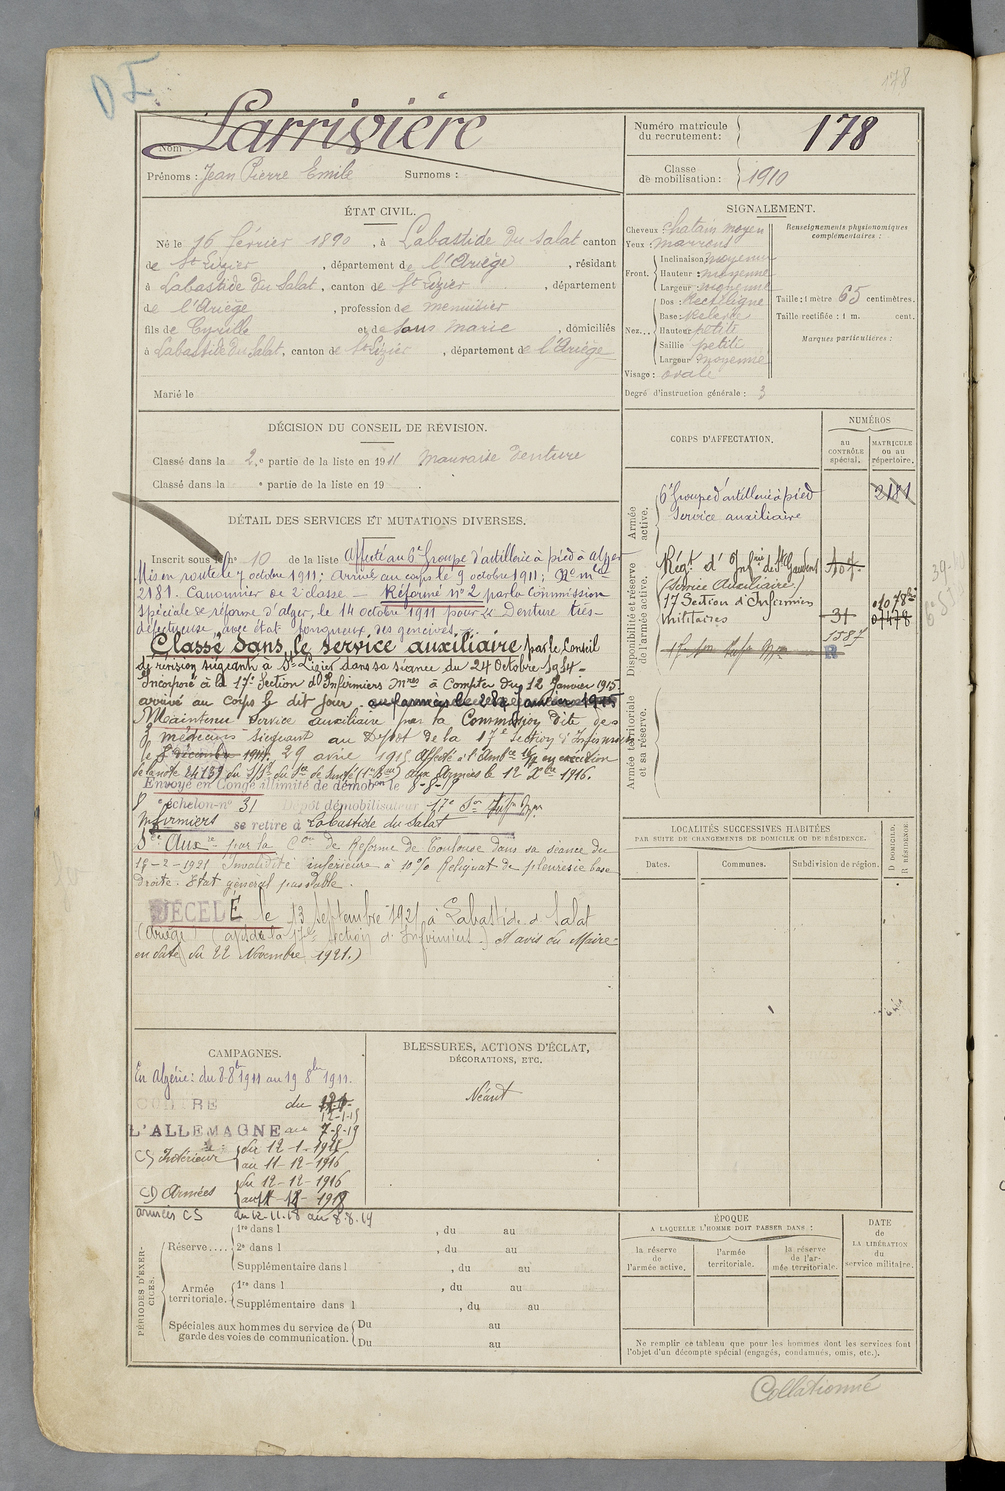 178
Larrivière
Nom :
Prénoms : Jean Pierre Emile Surnoms :
Numéro matricule du recrutement : 178
Classe de mobilisation : 1910
ÉTAT CIVIL.
Né le 16 février 1890, à Labastide du Salat canton
de St Lizier, département de l'Ariège, résidant
à Labastide du Salat, canton de St Lizier, département
de l'Ariège, profession de menuisier
fils de Cyrille et de Sans Marie, domiciliés
à Labastide du Salat, canton de St Lizier, département de l'Ariège
Marié le
SIGNALEMENT.
Cheveux : chatain moyen
Yeux : marrons
Front. Inclinaison : moyenne
Hauteur : moyenne
Largeur : moyenne
Nez... Dos : Rectiligne
Base : Relevée
Hauteur petite
Saillie petite
Largeur moyenne
Visage : ovale
Degré d'instruction générale : 3
Renseignements physionomiques complémentaires :
Taille : 1 mètre 65 centimètres.
Taille rectifiée : 1 m. cent.
Marques particulières :
DÉCISION DU CONSEIL DE RÉVISION.
Classé dans la 2e partie de la liste en 1911 Mauvaise denture
Classé dans la e partie de la liste en 192 .
DÉTAIL DES SERVICES ET MUTATIONS DIVERSES.
Inscrit sous le n° 10 de la liste Affecté au 6e Groupe d'artillerie à pied à Alger
Mis en route le 7 octobre 1911; Arrivé au corps le 9 octobre 1911; No mle
2181. Canonnier de 2e classe — Réformé n° 2 par la Commission
spéciale de réforme d'alger, le 14 octobre 1911 pour Denture très
défectueuse avec état fongueux des gencives.
Classé dans le service auxiliaire par le Conseil
de révision siégeant à St Lizier dans sa séance du 24 Octobre 1914
Incorporé à la 17e Section d'Infirmiers Mres à Compter du 12 Janvier 1915
arrivé au Corps le dit jour.
Maintenu Service auxiliaire par la Commission dite des
3 médecins siégeant au Dépôt de la 17e section d'Infirmiers
le 29 avril 1915 Affecté à l'Amb.ce en exécution
de la note 24139 du S/S. de Santé aux Armées le 12 Xbre 1916.
Envoyé en Congé illimité de démobon le 8-8-19
8e échelon-n° 31 Dépôt démobilisateur 17e Son Infirs Mres
Infirmiers se retire à Labastide du Salat
Sce Auxre par la Con de Réforme de Toulouse dans sa séance du
18-2-1921 Invalidité inférieure à 10% Reliquat de pleurésie base
droite. Etat général passable.
DÉCÉDÉ le 13 septembre 1921 à Labastide d. Salat
(Ariège) (avis de la 17e Section d'Infirmiers) et avis du Maire
en date du 22 Novembre 1921.)
CORPS D'AFFECTATION.
NUMÉROS
au contrôle spécial.
MATRICULE ou au répertoire.
Armée active.
6e Groupe d'artillerie à pied 2181
Service auxiliaire
Disponibilité et réserve de l'armée active.
Régt d'Infrie de St Gaudens 107
(Service Auxiliaire)
17 Section d'Infirmiers
Militaires 31 01478
1587
R
Armée territoriale et sa réserve.
LOCALITÉS SUCCESSIVES HABITÉES
PAR SUITE DE CHANGEMENTS DE DOMICILE OU DE RÉSIDENCE.
Dates. Communes. Subdivision de région.
D DOMICILE.
R RÉSIDENCE
CAMPAGNES.
En Algérie : du 8 8bre 1911 au 19 8bre 1911.
CONTRE du 12-1-15
L'ALLEMAGNE au 7-8-19
CS Intérieur du 12-1-1915
au 11-12-1916
CD Armées du 12-12-1916
au 11-1918
armées CS du 12.11.18 au 8.8.19
BLESSURES, ACTIONS D'ÉCLAT,
DÉCORATIONS, ETC.
Néant
PÉRIODES D'EXERCICES.
Réserve.... 1re dans l , du au
2e dans l , du au
Supplémentaire dans l , du au
Armée territoriale. 1re dans l , du au
Supplémentaire dans l , du au
Spéciales aux hommes du service de garde des voies de communication. Du au
Du au
ÉPOQUE
A LAQUELLE L'HOMME DOIT PASSER DANS :
la réserve de l'armée active.
l'armée territoriale.
la réserve de l'armée territoriale.
DATE de LA LIBÉRATION du service militaire.
Ne remplir ce tableau que pour les hommes dont les services font
l'objet d'un décompte spécial (engagés, condamnés, omis, etc.).
Collationné